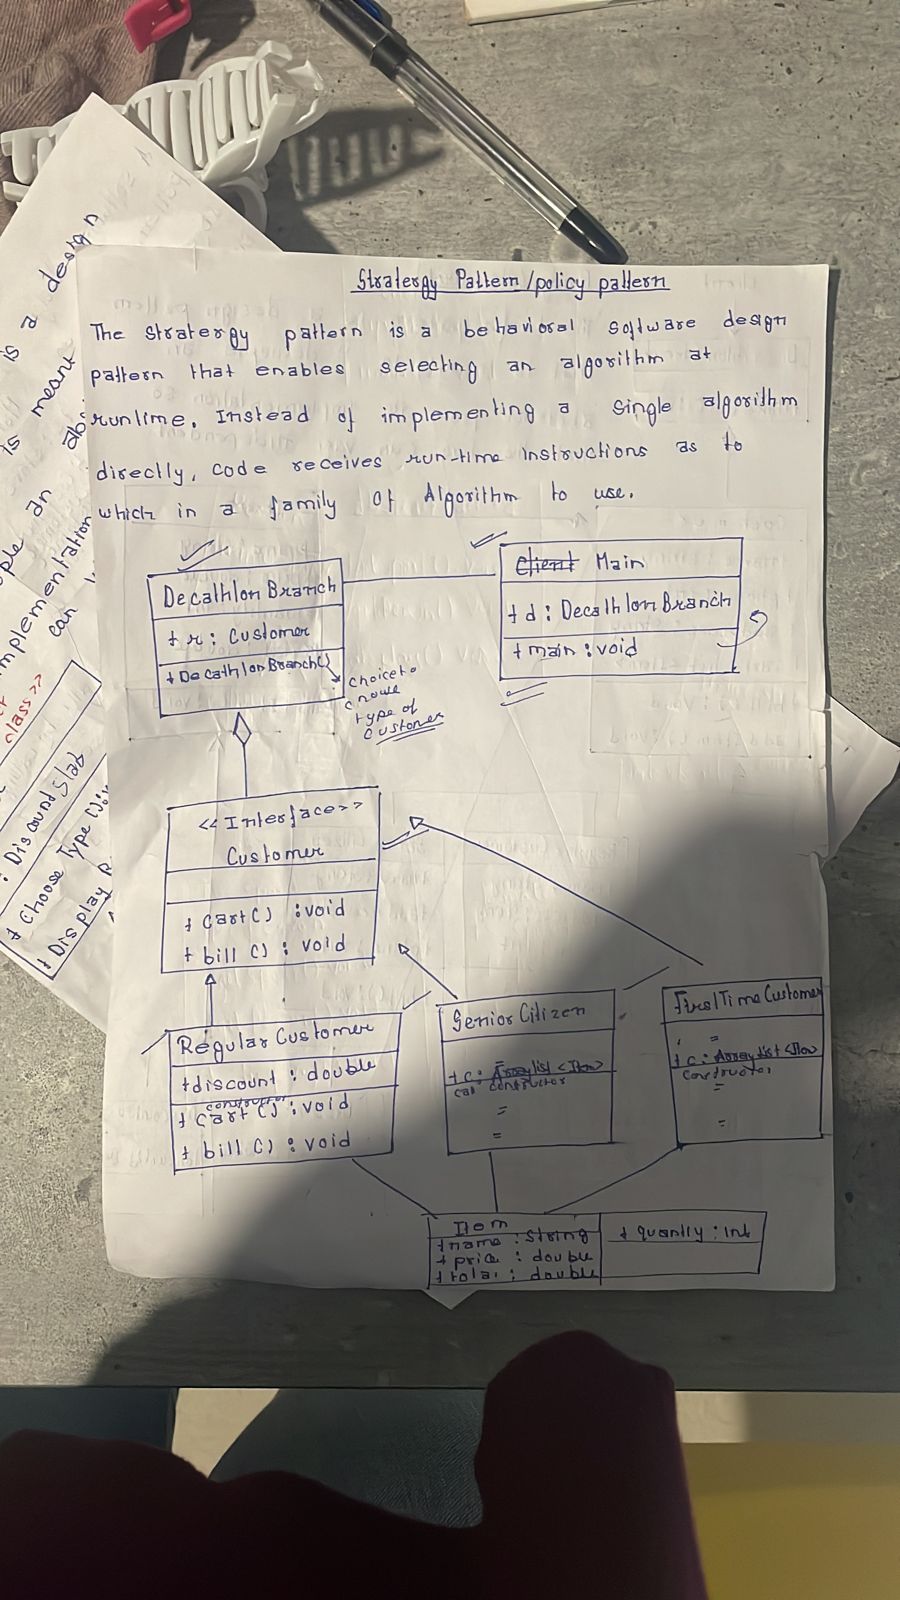 Stratergy Pattern/policy pattern
The Stratergy pattern is a behavioral software design
pattern that enables selecting an algorithm at
runtime. Instead of implementing a single algorithm
directly, code receives run-time instructions as to
which in a family of Algorithm to use.
Decathlon Branch
+ r : Customer
+ Decathlon Branch()
choice to
type of
customer
Client Main
+ d : Decathlon Branch
+ main : void
<<Interface>>
Customer
+ Cart() : void
+ bill () : void
Regular Customer
+ discount : double
constructor
+ Cart () : void
+ bill () : void
Senior Citizen
=
+ c : ArrayList <Item>
constructor
=
=
First Time Customer
=
+ c : ArrayList <Item>
constructor
=
=
Item
+ name : String
+ price : double
+ total : double
+ quantity : int
is a design
is meant
an
implementation
can
class >>
: Discound Slab
+ Choose Type
+ Display